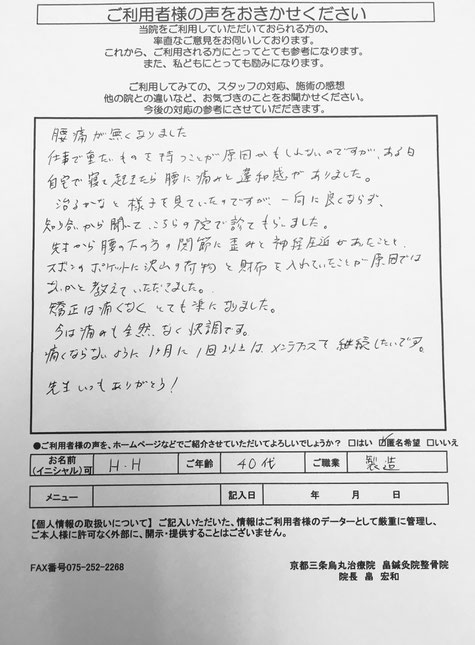 ご利用者様の声をおきかせください
当院をご利用していただいておられる方の、
率直なご意見をお伺いしております。
これから、ご利用される方にとってとても参考になります。
また、私どもにとっても励みになります。
ご利用してみての、スタッフの対応、施術の感想
他の院との違いなど、お気づきのことをお聞かせください。
今後の対応の参考にさせていただだきます。
腰痛が無くなりました
仕事で重たいものを持つことが原因かもしれないのですが、ある日
自宅で寝て起きたら腰に痛みと違和感がありました。
治るかなと様子を見ていたのですが一向に良くならず、
知り合いから聞いてこちらの院で診てもらいました。
先生から腰の下の方の関節に歪みと神経圧迫があったことと、
ズボンのポケットに沢山の荷物と財布を入れていたことが原因では
ないかと教えていただきました。
矯正は痛くなくとても楽になりました。
今は痛みも全然なく快調です。
痛くならないように1ヶ月に1回以上は、メンテナンスで継続したいです。
先生いつもありがとう!
●ご利用者様の声を、ホームページなどでご紹介させていただいてよろしいでしょうか? □はい ☑匿名希望 □いいえ
お名前 (イニシャル)可 H.H ご年齢 40代 ご職業 製造
メニュー 記入日 年 月 日
【個人情報の取扱いについて】 ご記入いただいた、情報はご利用者様のデーターとして厳重に管理し、
ご本人様に許可なく外部に、開示・提供することはございません。
FAX番号075-252-2268 京都三条烏丸治療院 畠鍼灸院整骨院
院長 畠 宏和